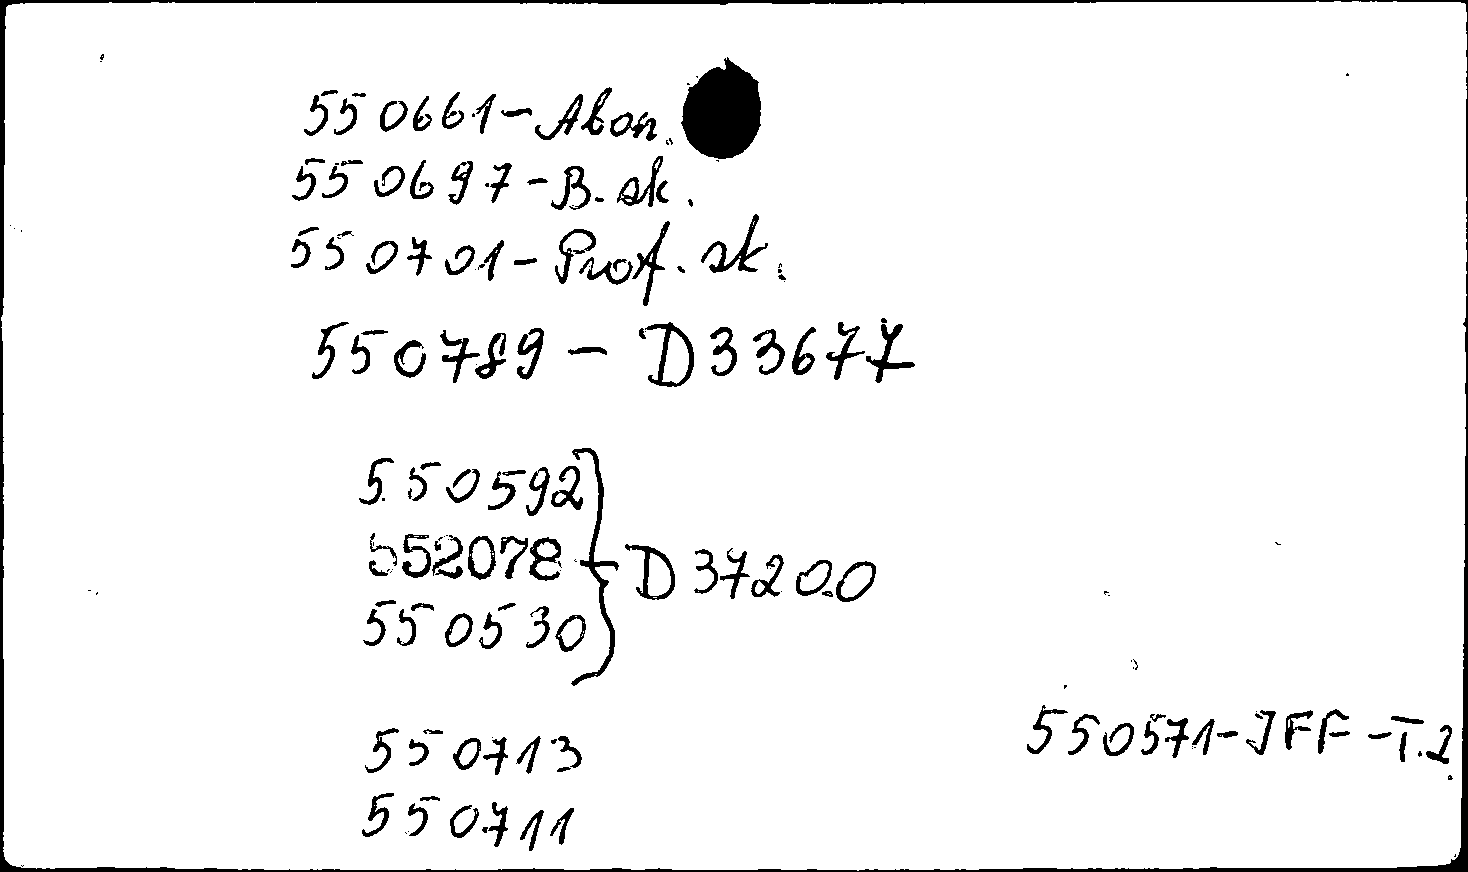 550661-Abon.
550697-B.sk.
550701-Prof.sk.
550789 - D33677
550592
552078 - D37200
550530
550713
550711
550571-JFF-T.2